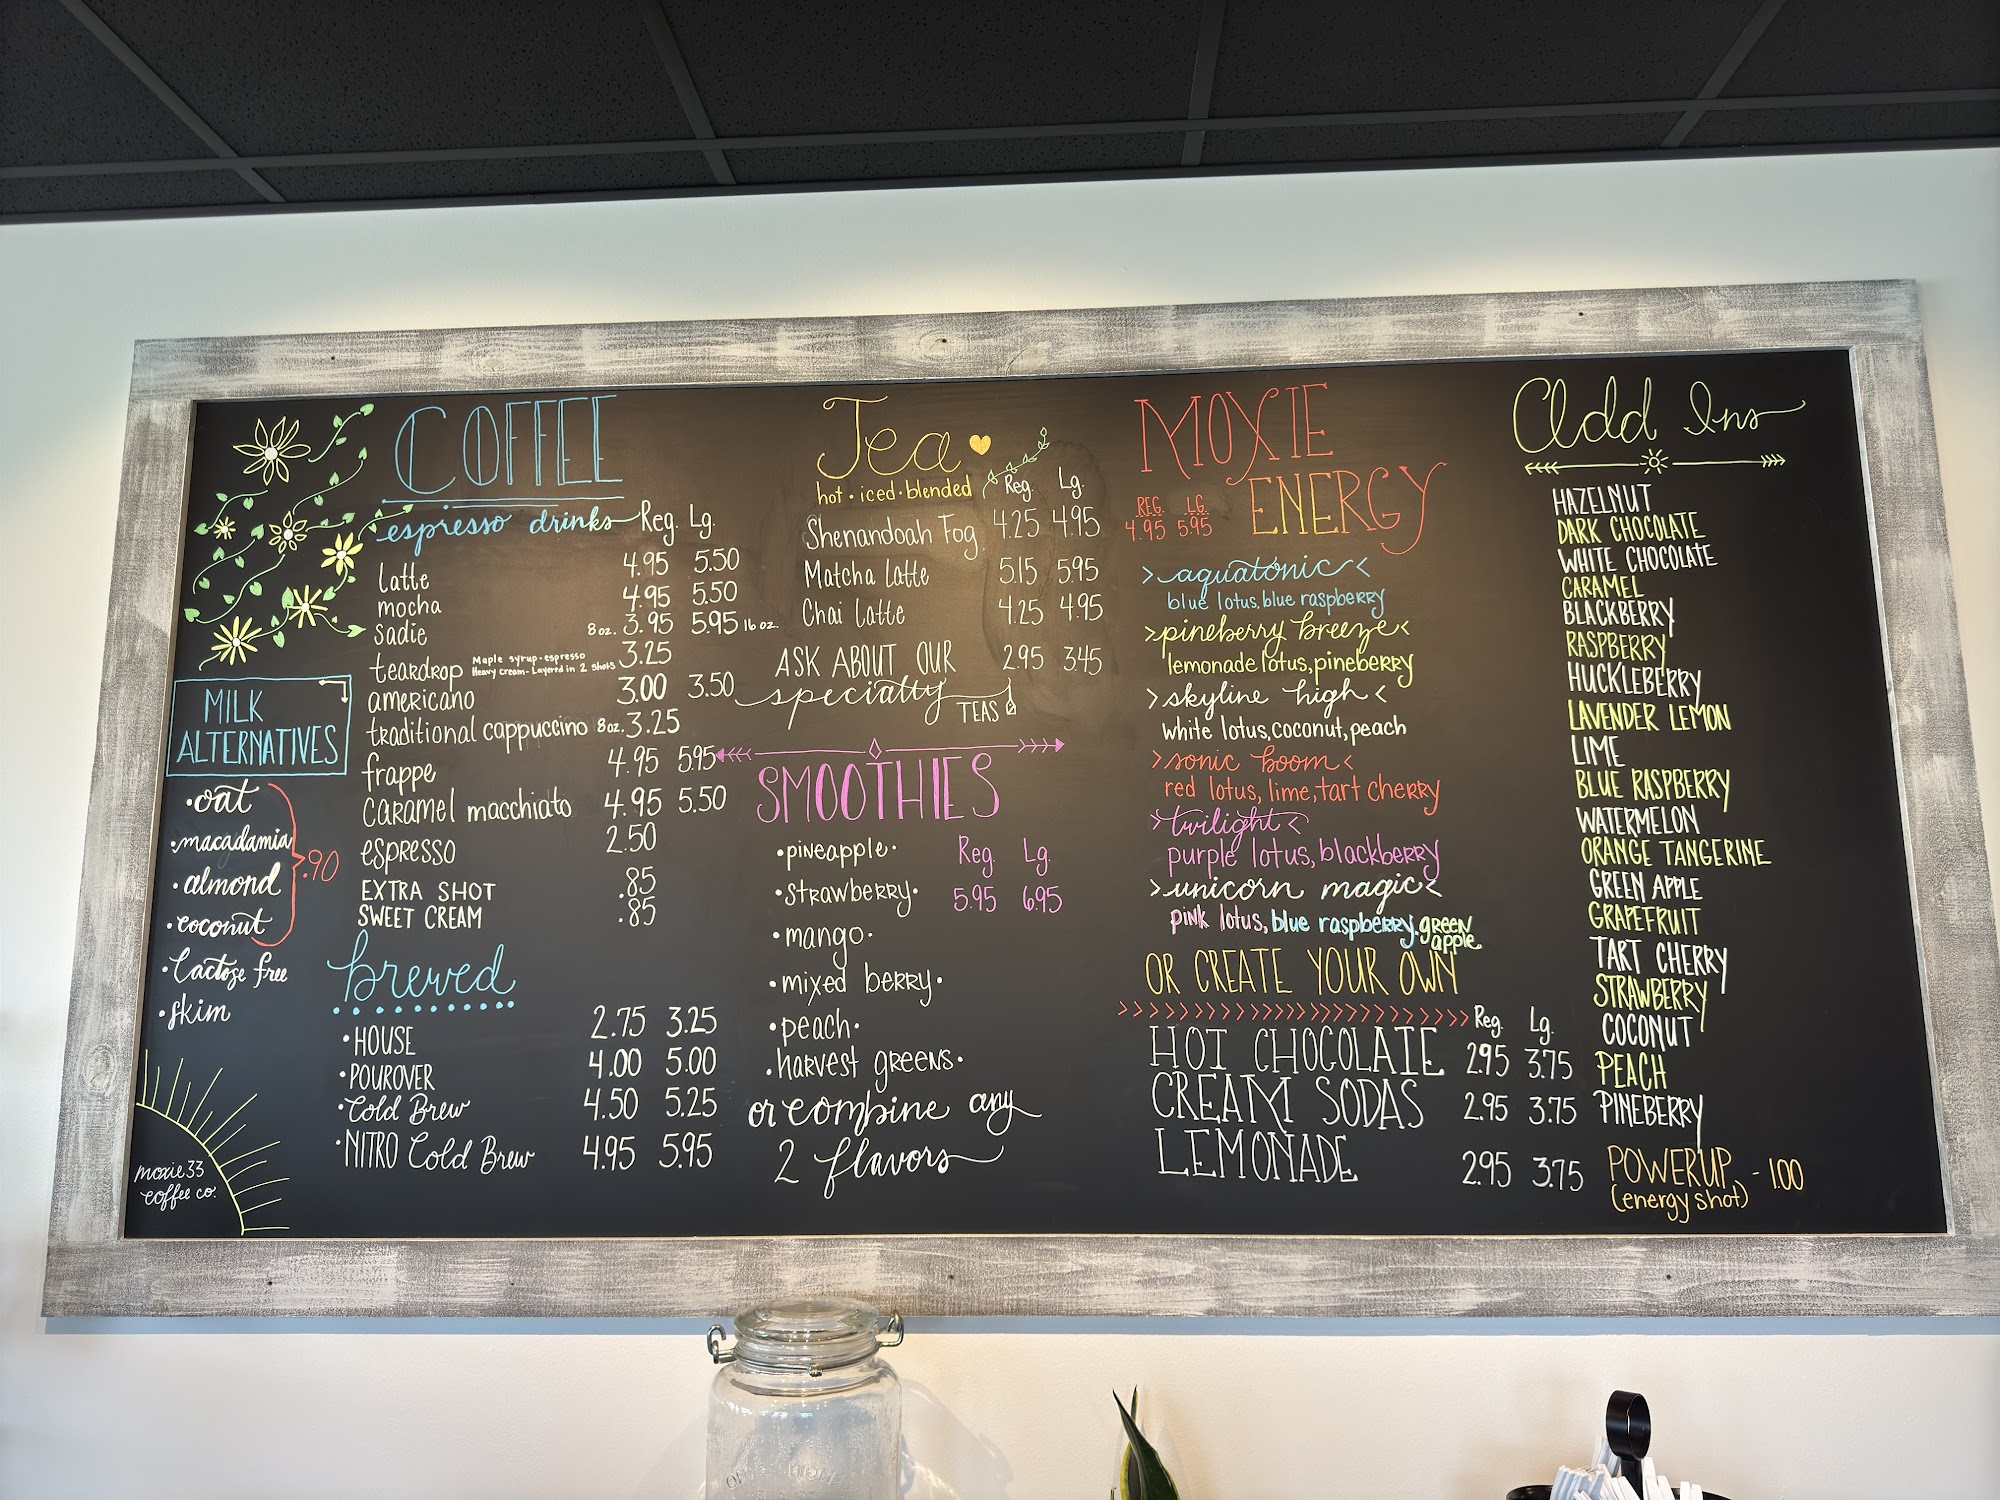 COFFEE
espresso drinks Reg. Lg.
latte 4.95 5.50
mocha 4.95 5.50
sadie 8 oz. 3.95 5.95 16 oz.
teardrop Maple syrup - espresso Heavy cream - Layered in 2 shots 3.25
americano 3.00 3.50
traditional cappuccino 8 oz. 3.25
frappe 4.95 5.95
caramel macchiato 4.95 5.50
espresso 2.50
EXTRA SHOT .85
SWEET CREAM .85
brewed
• HOUSE 2.75 3.25
• POUROVER 4.00 5.00
• Cold Brew 4.50 5.25
• NITRO Cold Brew 4.95 5.95
MILK
ALTERNATIVES
• oat
• macadamia
• almond
• coconut
.90
• Lactose free
• skim
moxie 33
coffee co.
Tea
hot • iced • blended Reg. Lg.
Shenandoah Fog 4.25 4.95
Matcha Latte 5.15 5.95
Chai Latte 4.25 4.95
ASK ABOUT OUR 2.95 3.45
specialty
TEAS
SMOOTHIES
• pineapple • Reg. Lg.
• strawberry • 5.95 6.95
• mango •
• mixed berry •
• peach •
• harvest greens •
or combine any
2 flavors
MOXIE
ENERGY
REG. LG.
4.95 5.95
> aquatonic <
blue lotus, blue raspberry
> pineberry breeze <
lemonade lotus, pineberry
> skyline high <
white lotus, coconut, peach
> sonic boom <
red lotus, lime, tart cherry
> twilight <
purple lotus, blackberry
> unicorn magic <
pink lotus, blue raspberry, green
apple
OR CREATE YOUR OWN
Reg. Lg.
HOT CHOCOLATE 2.95 3.75
CREAM SODAS 2.95 3.75
LEMONADE 2.95 3.75
Add Ins
HAZELNUT
DARK CHOCOLATE
WHITE CHOCOLATE
CARAMEL
BLACKBERRY
RASPBERRY
HUCKLEBERRY
LAVENDER LEMON
LIME
BLUE RASPBERRY
WATERMELON
ORANGE TANGERINE
GREEN APPLE
GRAPEFRUIT
TART CHERRY
STRAWBERRY
COCONUT
PEACH
PINEBERRY
POWERUP - 1.00
(energy shot)